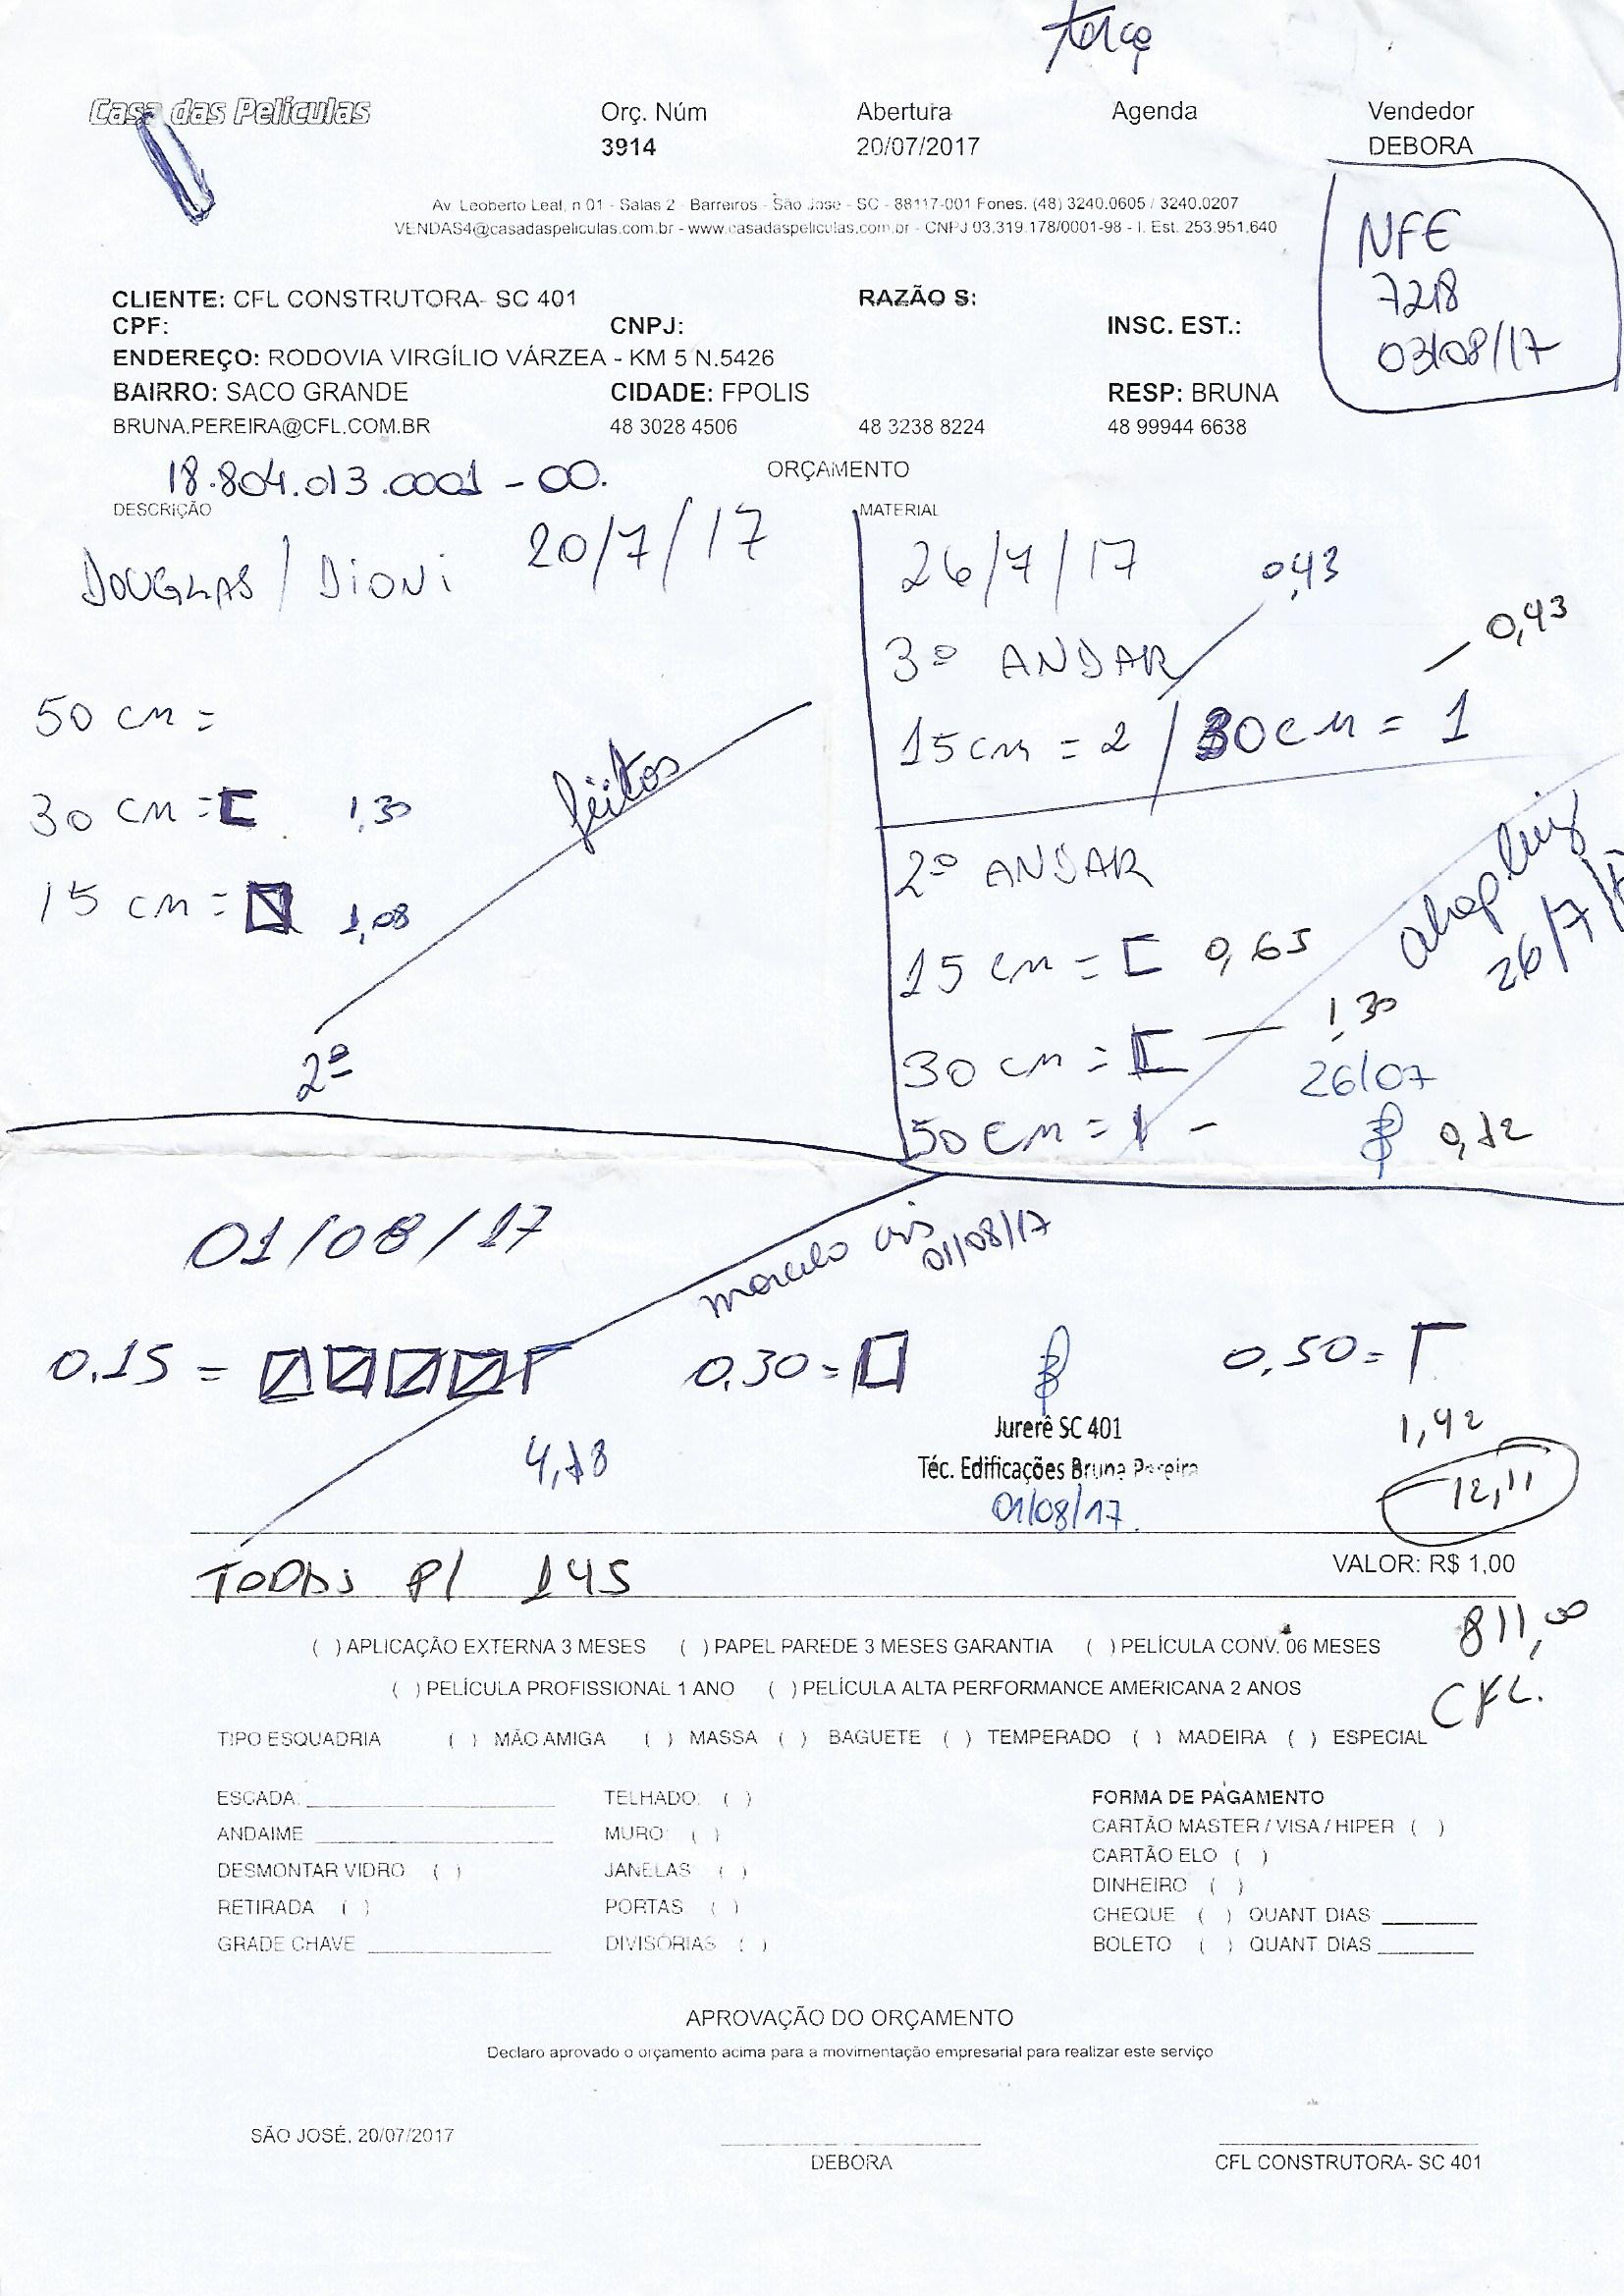 terça
Casa das Películas
Orç. Núm Abertura Agenda Vendedor
3914 20/07/2017 DEBORA
Av. Leoberto Leal, n 01 - Salas 2 - Barreiros - São José - SC - 88117-001 Fones: (48) 3240.0605 / 3240.0207
VENDAS4@casadaspeliculas.com.br - www.casadaspeliculas.com.br - CNPJ 03.319.178/0001-98 - I. Est. 253.951.640
NFE
7218
03/08/17
CLIENTE: CFL CONSTRUTORA- SC 401 RAZÃO S:
CPF: CNPJ: INSC. EST.:
ENDEREÇO: RODOVIA VIRGÍLIO VÁRZEA - KM 5 N.5426
BAIRRO: SACO GRANDE CIDADE: FPOLIS RESP: BRUNA
BRUNA.PEREIRA@CFL.COM.BR 48 3028 4506 48 3238 8224 48 99944 6638
18.804.013.0001-00.
ORÇAMENTO
DESCRIÇÃO MATERIAL
DOUGLAS / DIONI 20/7/17
50 cm =
30 cm = 1,30
15 cm = 1,08
feitos
2º
26/7/17 0,43
3º ANDAR
15cm = 2 / 30cm = 1 0,43
2º ANDAR
15 cm = 0,65
30 cm = 1,30
26/7/17
26/07
50 cm = 1 - 0,12
01/08/17
marcelo 01/08/17
0,15 = 0,30 = 0,50 =
4,18 1,42
Jurerê SC 401
Téc. Edificações Bruna Pereira
01/08/17
12,11
VALOR: R$ 1,00
TODAS P/ 145
811,00
CFL.
( ) APLICAÇÃO EXTERNA 3 MESES ( ) PAPEL PAREDE 3 MESES GARANTIA ( ) PELÍCULA CONV. 06 MESES
( ) PELÍCULA PROFISSIONAL 1 ANO ( ) PELÍCULA ALTA PERFORMANCE AMERICANA 2 ANOS
TIPO ESQUADRIA ( ) MÃO AMIGA ( ) MASSA ( ) BAGUETE ( ) TEMPERADO ( ) MADEIRA ( ) ESPECIAL
ESCADA: ____ TELHADO: ( ) FORMA DE PAGAMENTO
ANDAIME ____ MURO: ( ) CARTÃO MASTER / VISA / HIPER ( )
DESMONTAR VIDRO ( ) JANELAS ( ) CARTÃO ELO ( )
RETIRADA ( ) PORTAS ( ) DINHEIRO ( )
GRADE CHAVE ____ DIVISÓRIAS ( ) CHEQUE ( ) QUANT DIAS ____
BOLETO ( ) QUANT DIAS ____
APROVAÇÃO DO ORÇAMENTO
Declaro aprovado o orçamento acima para a movimentação empresarial para realizar este serviço
SÃO JOSÉ, 20/07/2017
DEBORA CFL CONSTRUTORA- SC 401